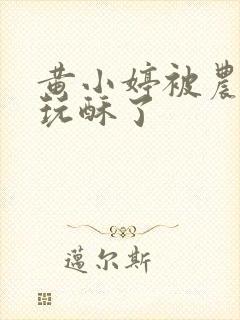 黄小婷被農
玩酥了
邁尔斯